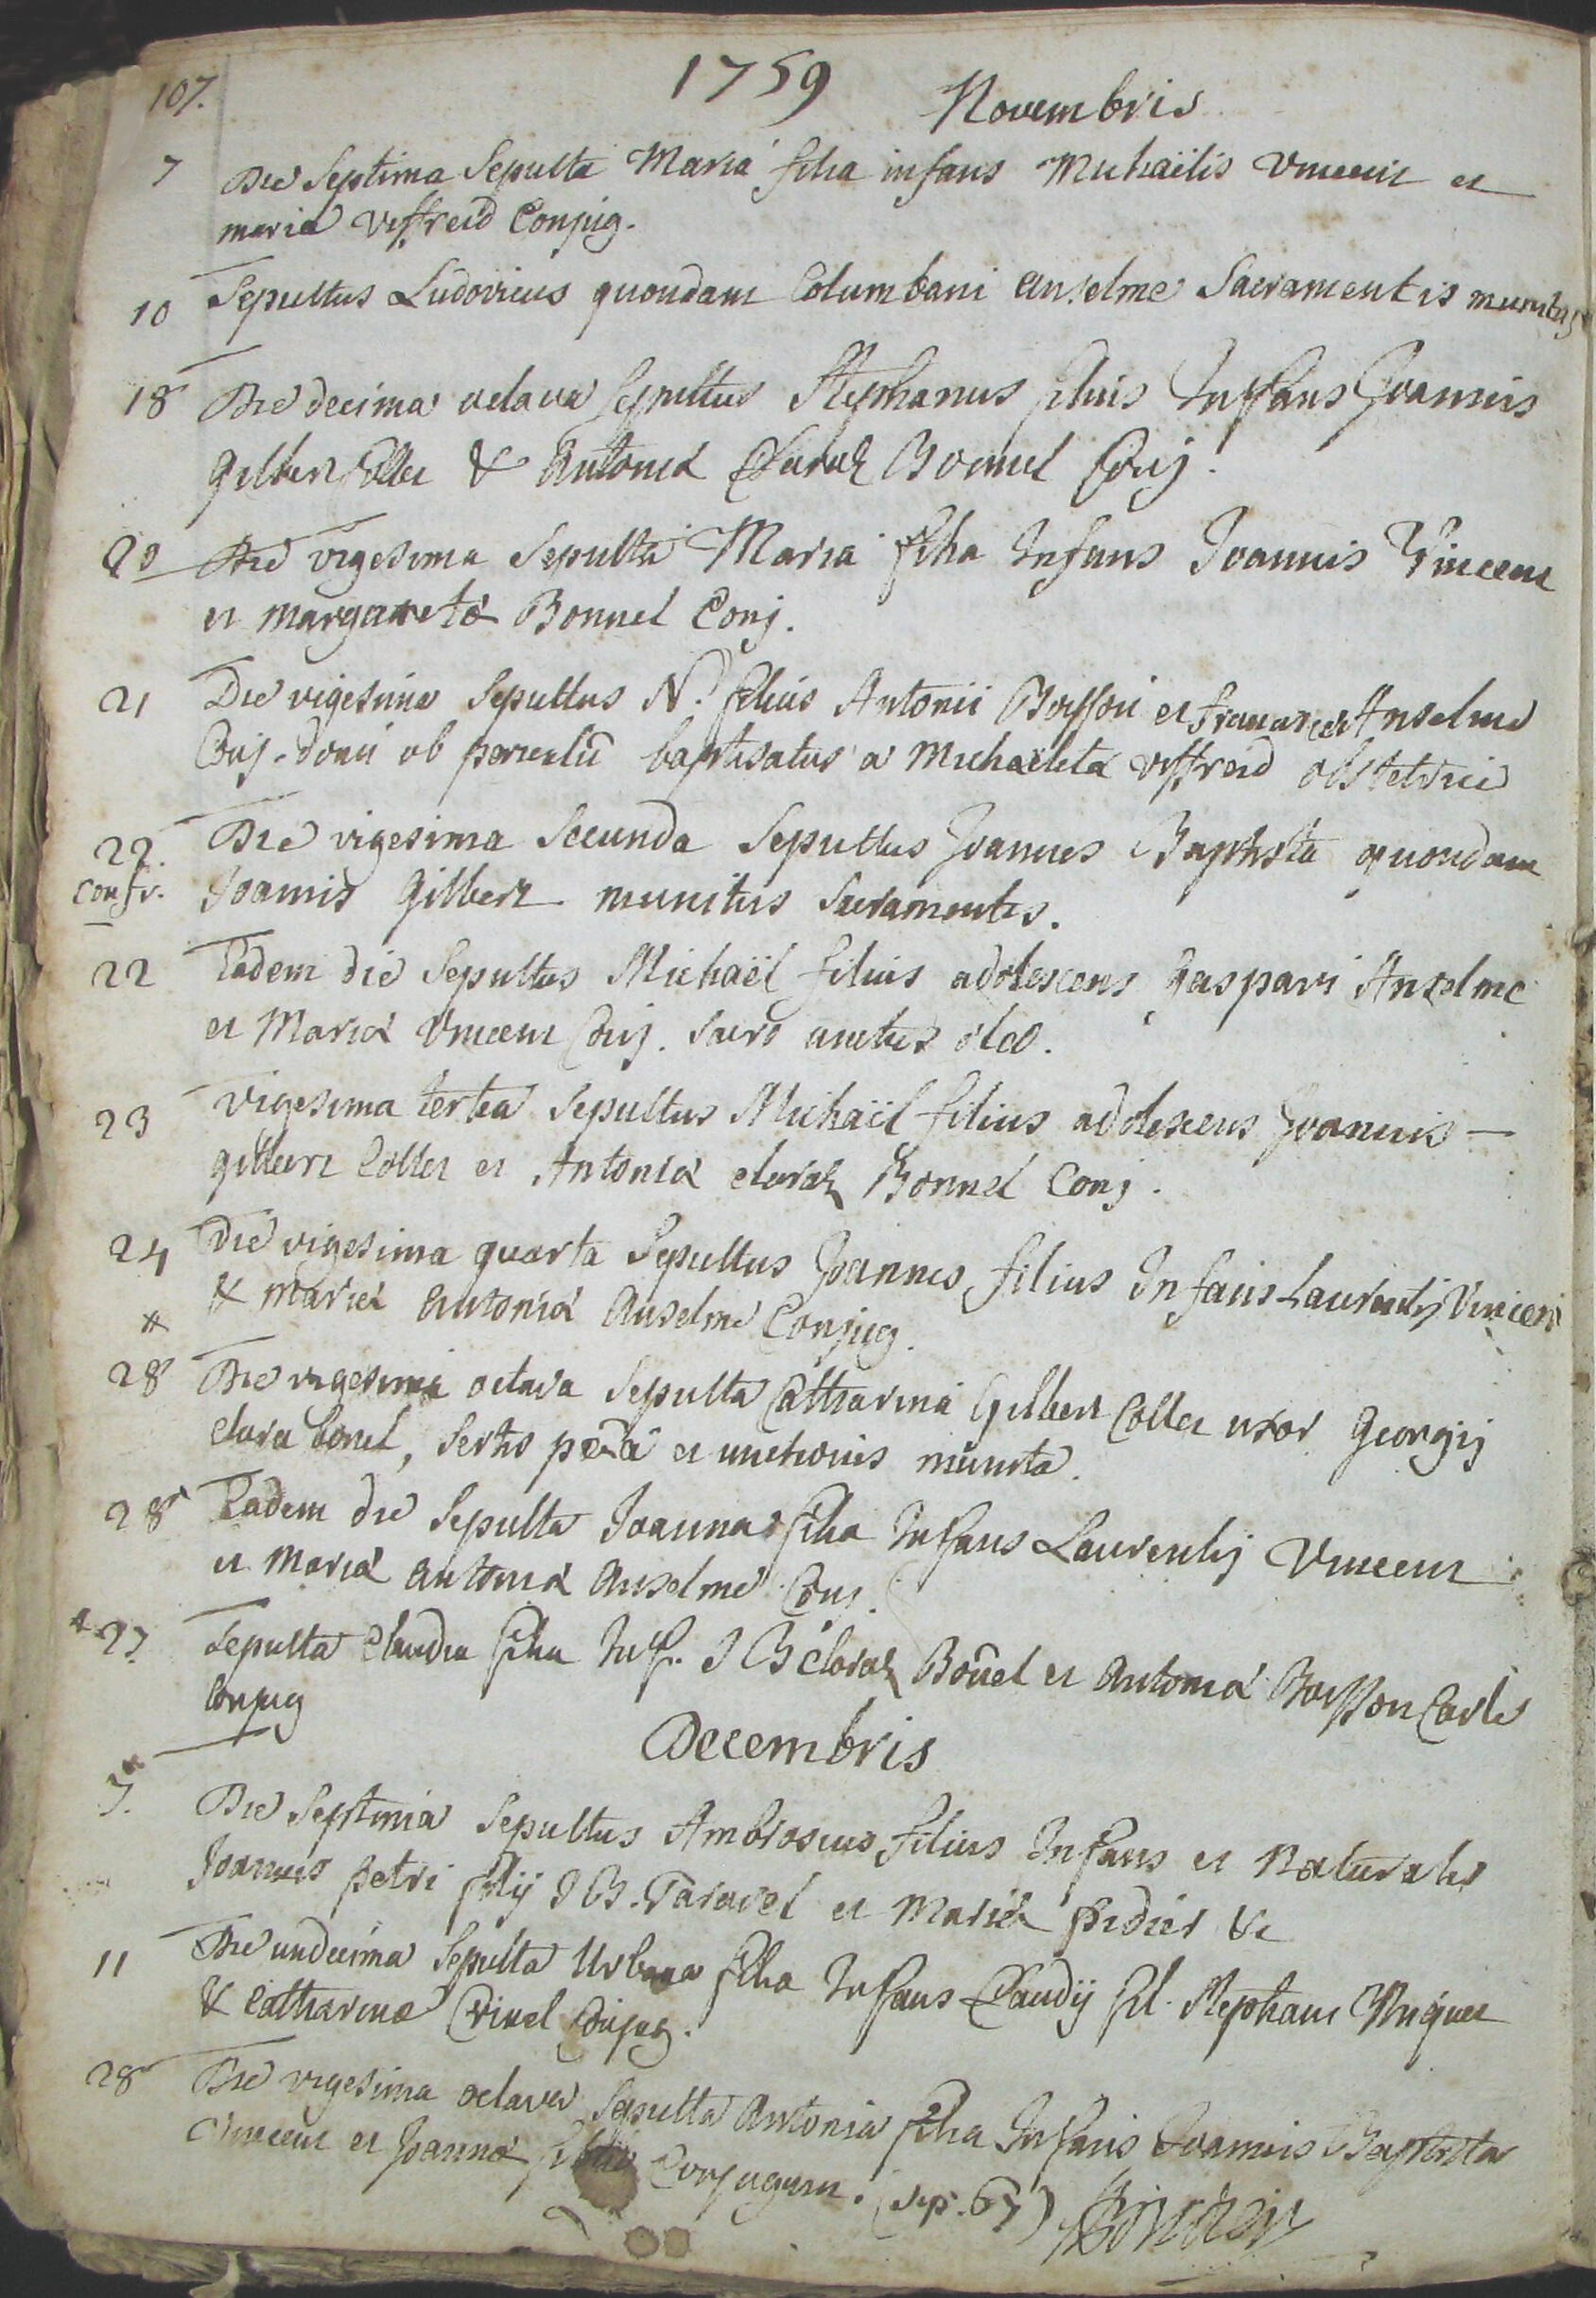 107.
1759
Novembris
7 Die Septima Sepulta Maria filia infans Michaëlis Vincent et
mariæ Viffreid Conjug.
10 Sepultus Ludovicus quondam Columbani anselme Sacramentis munitus
18 Die decima octava Sepultus Stephanus filius Infans Joannis
gilbert Collet & Antoniæ Claraz Bonnel Conj.
20 Die vigesima Sepulta Maria filia Infans Joannis Vincent
et margaretæ Bonnel Conj.
21 Die vigesima Sepultus N. filius Antonii Boisson et franciscæ Anselme
Conj. domi ob periculū baptisatus a Michaeleta viffreid obstetrice
22. Die vigesima Secunda Sepultus Joannes Baptista quondam
Confr. Joannis Gilbert munitus Sacramentis.
22 Eadem die Sepultus Michaël filius adolescens gaspari Anselme
et Mariæ Vincent Conj. sacro unctus oleo.
23 Vigesima tertia Sepultus Michaël filius adolescens Joannis —
gilbert Collet et Antoniæ claraz Bonnel Conj.
24 Die vigesima quarta Sepultus Joannes filius Infans Laurentij Vincent
& mariæ Antoniæ Anselme Conjug.
28 Die vigesima octava Sepulta Catharina Gilbert Collet uxor Georgij
clara bonel, Sertis et unctionis munita.
28 Eadem die Sepulta Joanna filia Infans Laurentij Vincent
et Mariæ Antoniæ Anselme Conj.
27. Sepulta Claudia filia Inf. J B claraz Boñel et Antoniæ Boisson Carle
Conjug
Decembris
7. Die Septima Sepultus Ambrosius filius Infans et Naturalis
Joannis petri filij J B. Taravel et Mariæ Didier &c
11 Die undecima Sepulta Urbana filia Infans Claudij fil. Stephani Miquet
& Catharinæ Conjug.
28 Die vigesima octava Sepulta Antonia filia Infans Joannis Baptista
Vincent et Joannæ Conjugum. (sep. 67)